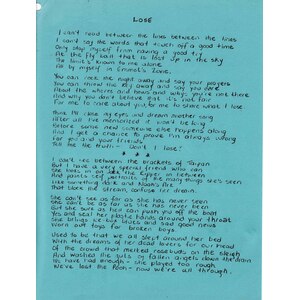 LOSE
I can't read between the lines between the lines
I can't say the words that touch off a good time
Only stop myself from having a good try
At the fly ball that is lost up in the sky
The limit's known to me alone
All by myself in Emmet's Zone.
You can rock the night away and say your prayers
You can throw the key away and say you care
About the wheres and hows and whys you're not there
And why you don't believe that it's not fair
For me to care about you, for me to share what I lose
Think I'll close my eyes and dream another song
After all I've memorized it won't be long
Before some new someone else happens along
And I get a chance to prove I'm always wrong
For you and your friends'
Tell me the truth - Don't I lose?
* * *
I can't see between the brackets of
I have a very special friend who can
She looks in on the in letters
And paints self portraits of the many things she's seen
Like something dark and Noah's Ark
That blank the stream, confuse her dream.
She can't see as far as she has never seen
She can't be as far as she has never been
But she sure as hell can push you off the boat
Yes and seal her plastic hands around your throat
She brings ice blue and sad good news
Worn out toys for broken boys
Used to be that we all slept around her bed
With the dreams of her dead lovers for our bread
Of the crowd that melted rosebuds on the
And washed the guts of fallen angels down the drain
We have had enough - she played too rough
We've lost the Room - now we're all through.